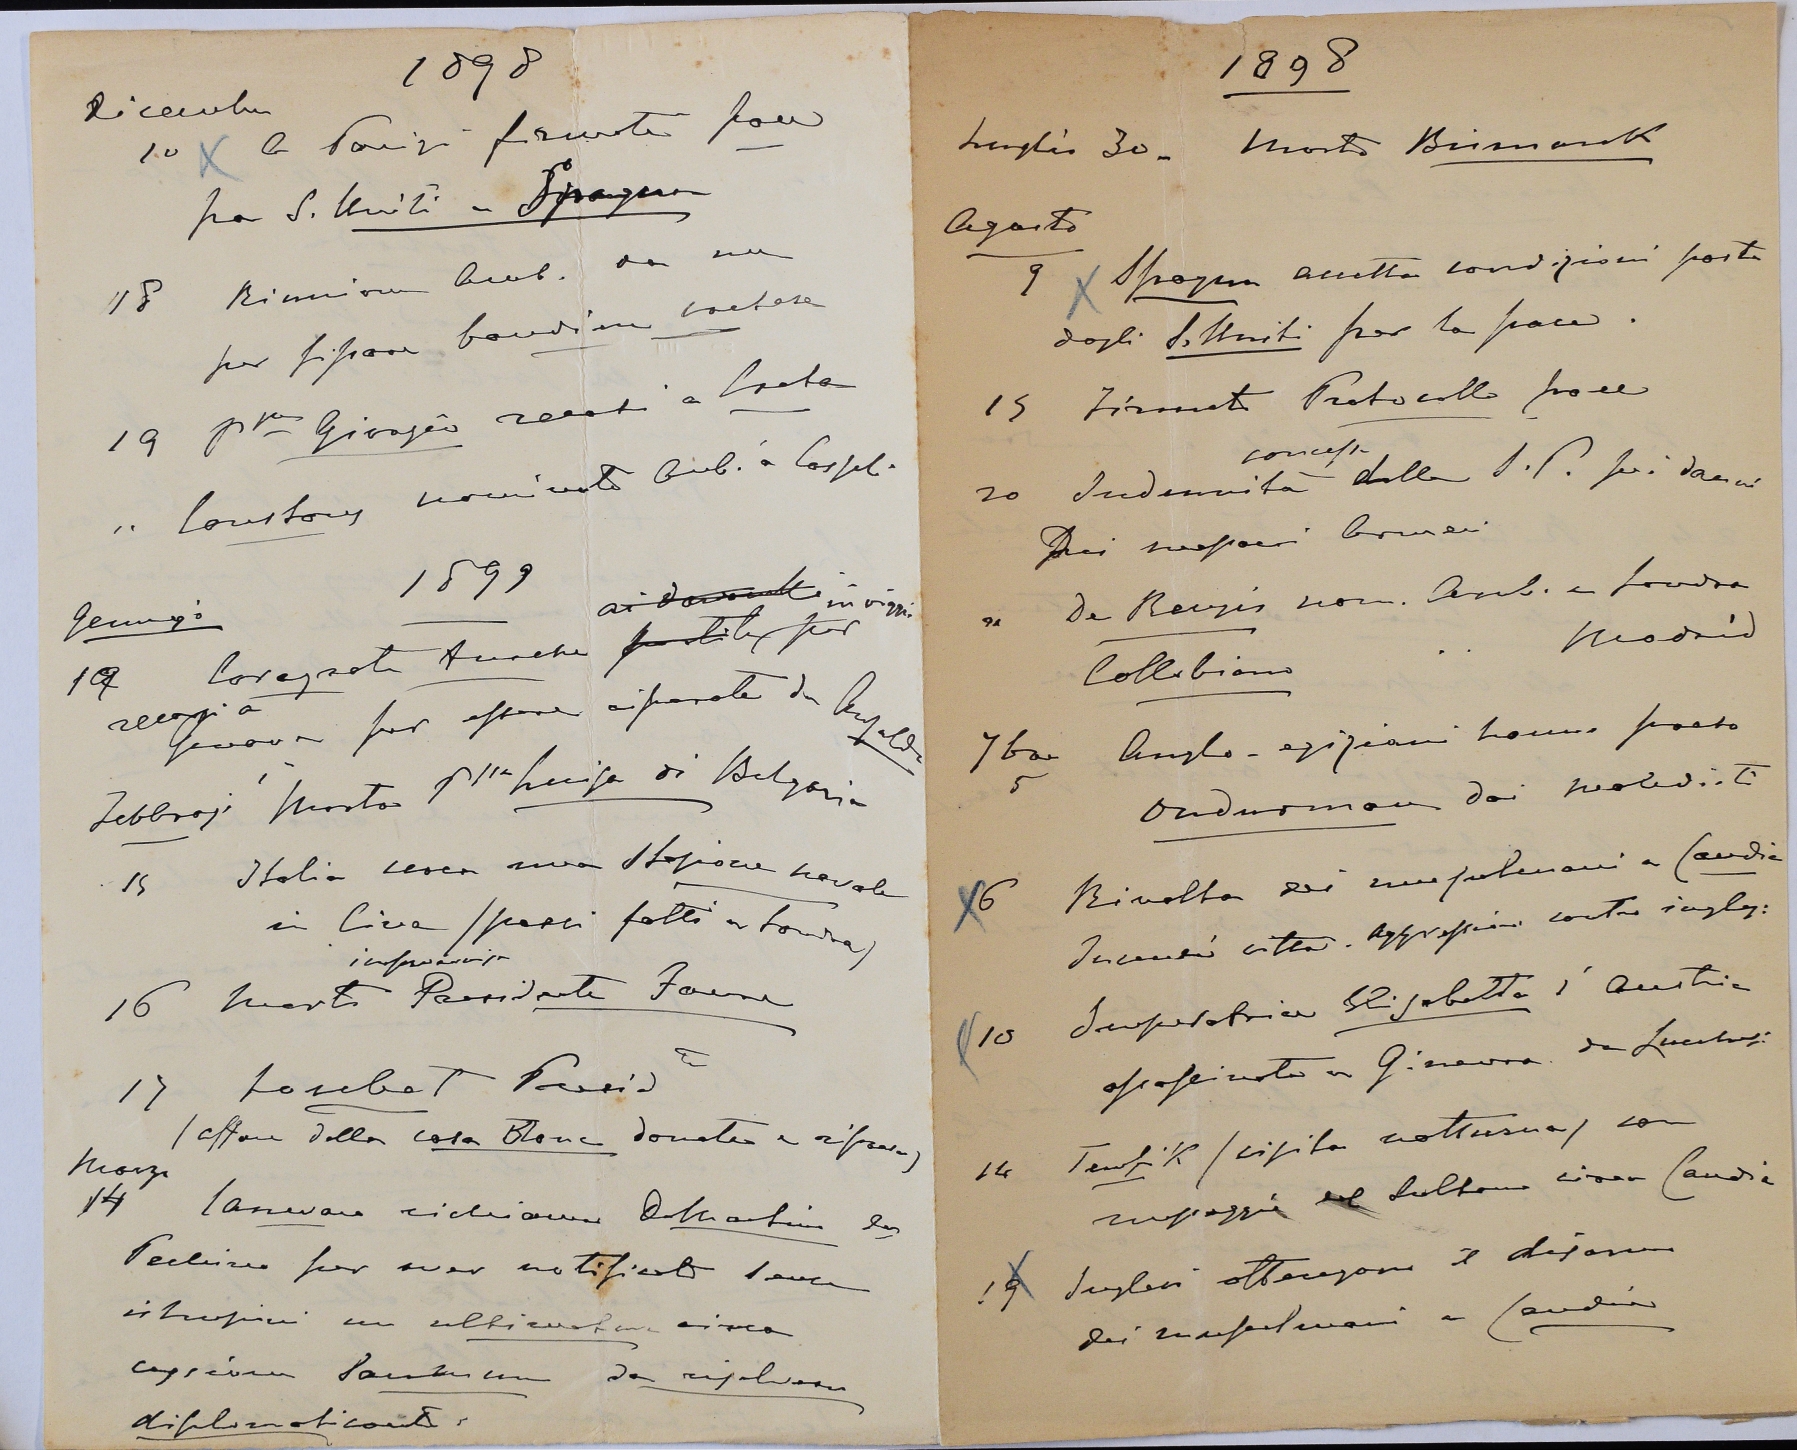 1898
Dicembre
10 X A Parigi firmata pace
fra S. Uniti e Spagna
18 Riunione Amb. da me
per fissare bandiera cretese
19 Ppe Giorgio recasi a Creta
" Constans nominato Amb. a Costpli.
1899
Gennajo
19 Corazzata turche ai Dardanelli in viaggio
per
recasi a
Genova per essere riparata da Ansaldo
Febbrajo 1 Morta Pssa Luisa di Bulgaria
15 Italia cerca una Stazione navale
in Cina (passi fatti a Londra)
improvvisa
16 Morto Presidente Faure
17 Loubet Presid te
(affare della casa Blanc donata e ripresa)
Marzo
14 Canevaro richiama DeMartino da
Pechino per aver notificato senza
istruzioni un ultimatum circa
cessione Sanmun da risolversi
diplomaticamte.
1898
Luglio 30 - Morto Bismark
Agosto
9 X Spagna accetta condizioni poste
dagli S. Uniti per la pace.
15 Firmato Protocollo pace
concessa
20 Indennità dalla S. P. pei danni
Dei massacri Armeni
" De Renzis nom. Amb. a Londra
Collobiano " " Madrid
7bre Anglo-egiziani hanno preso
5
Ondurman dai mahdisti
X 6 Rivolta dei mussulmani a Candia
Incendio città. Aggressione contro inglesi:
10 Imperatrice Elisabetta d'Austria
assassinata a Ginevra da Luccheni:
14 Tewfik (visita notturna) con
messaggio del Sultano circa Candia
19 X Inglesi ottengono il disarmo
dei mussulmani a Candia